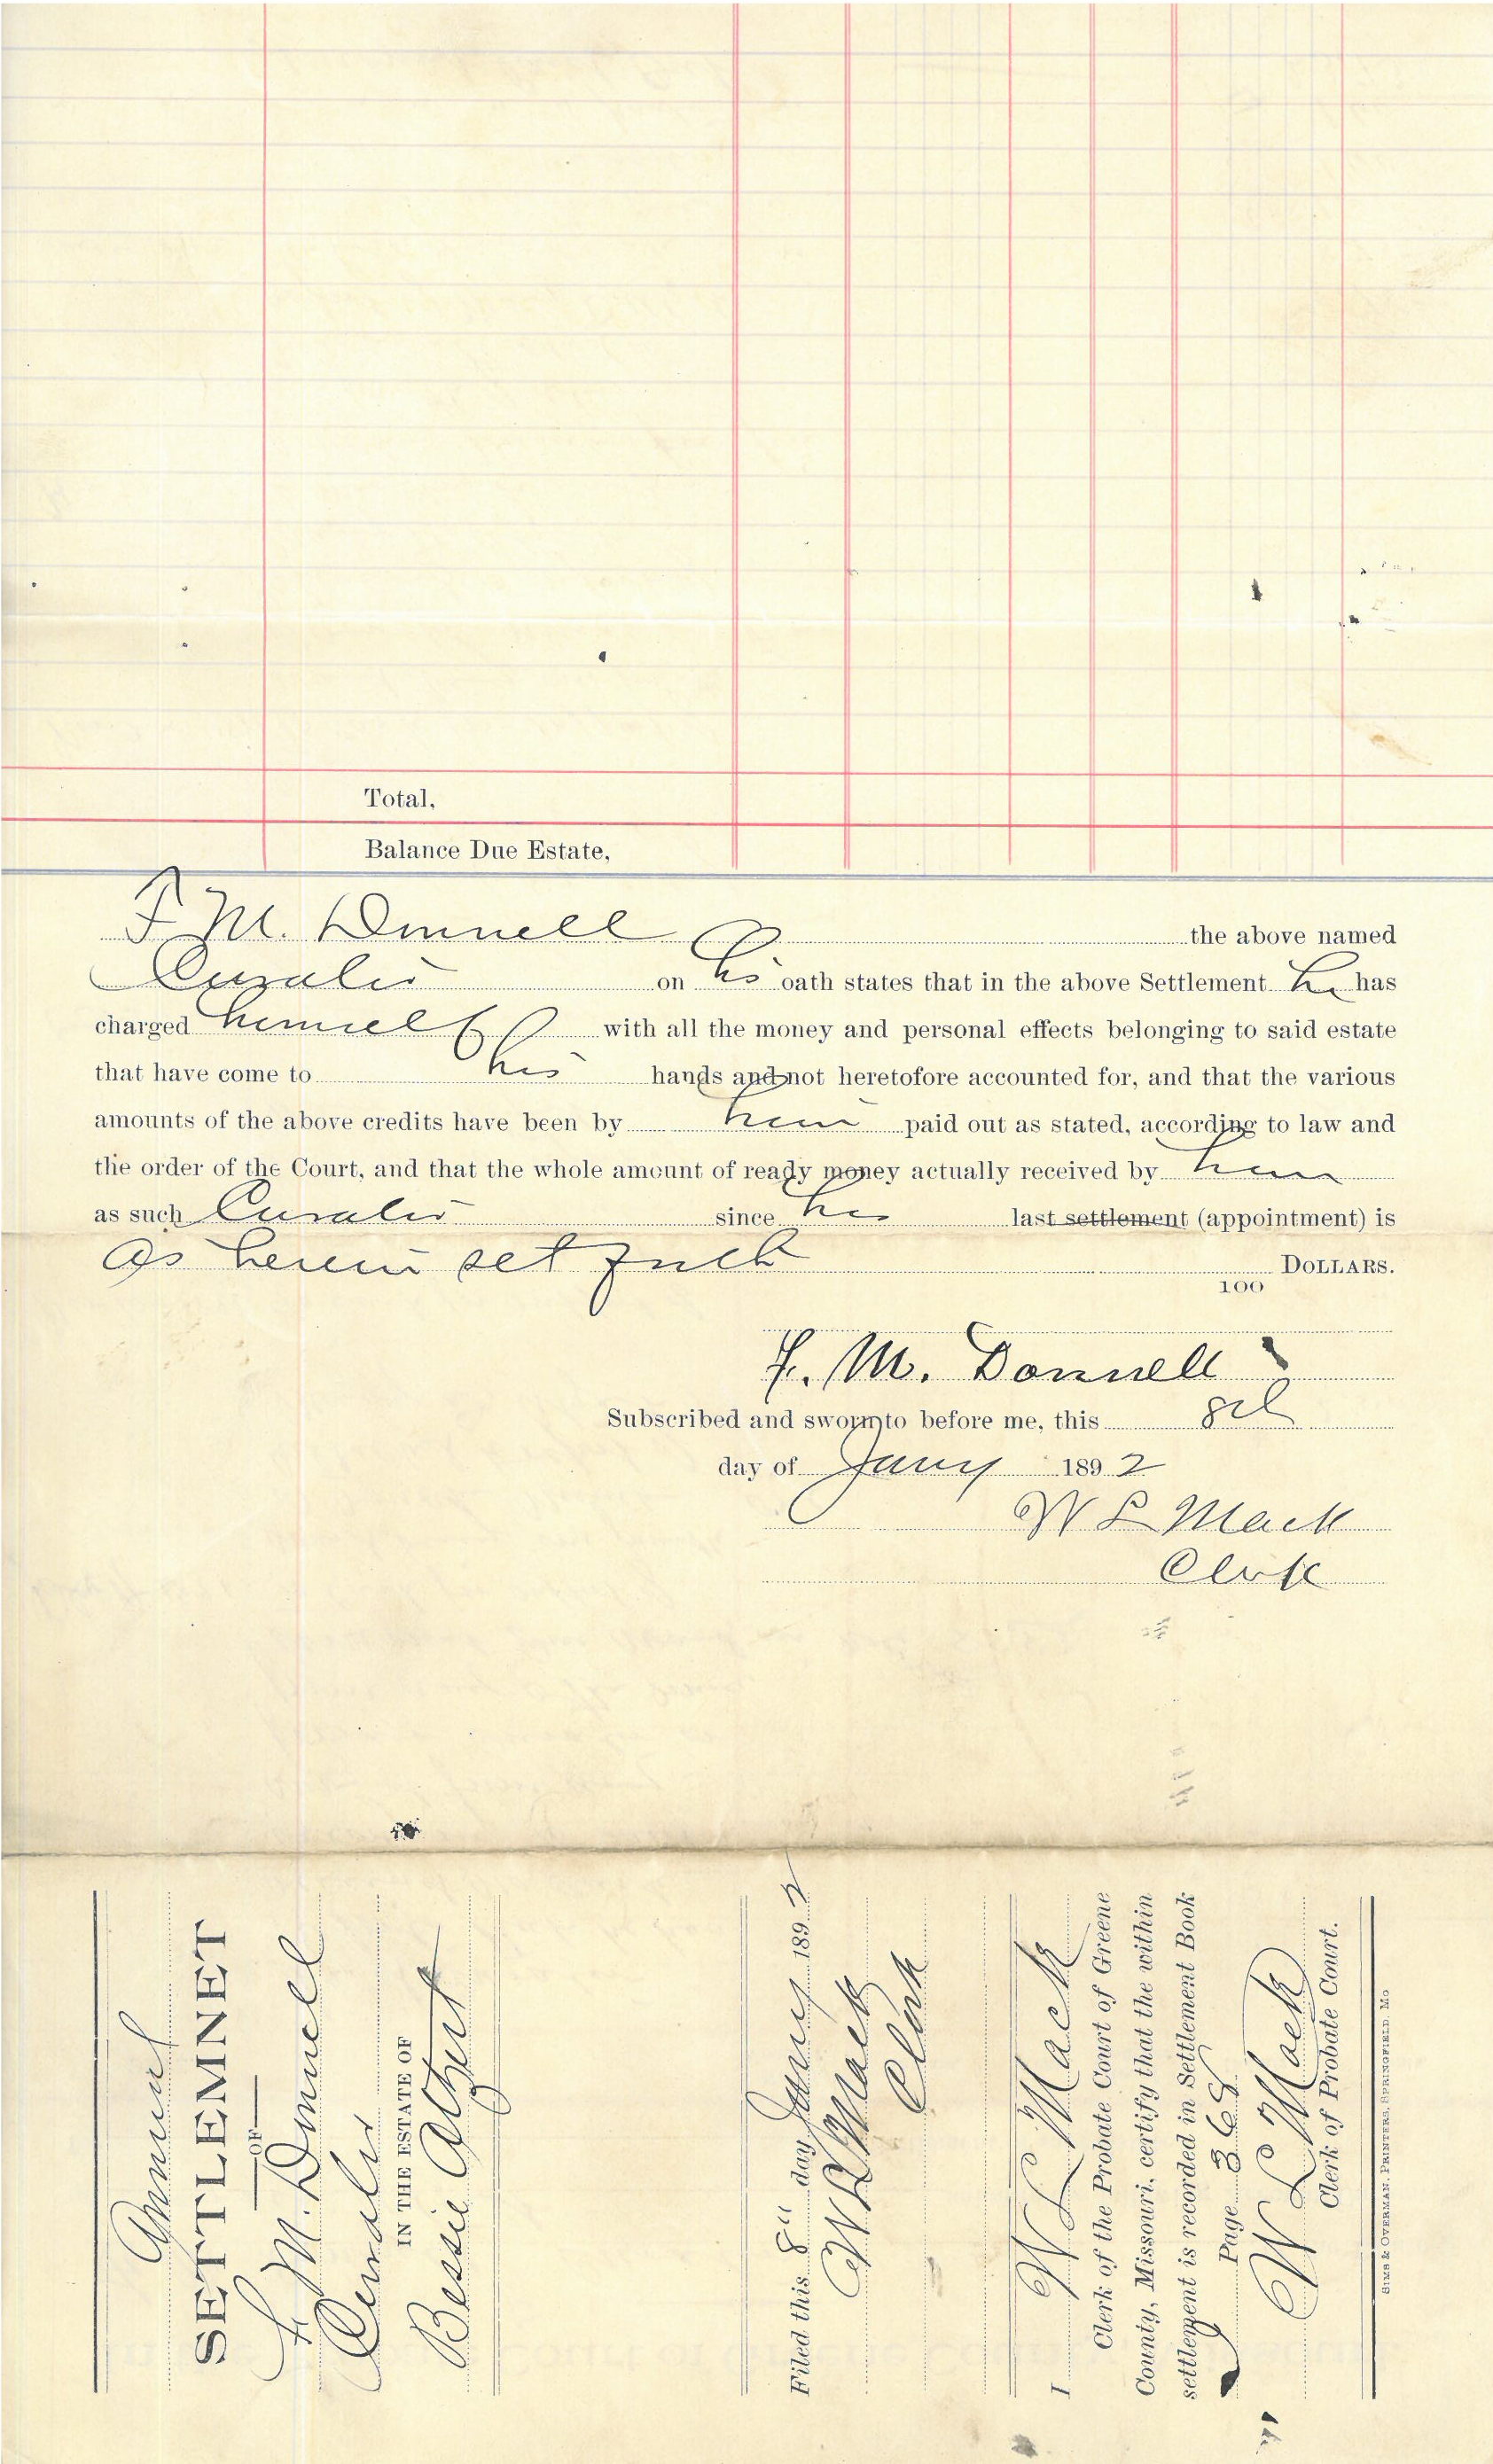 Total,
Balance Due Estate,
F. M. Donnell the above named
Curator on his oath states that in the above Settlement he has
charged himself with all the money and personal effects belonging to said estate
that have come to his hands and not heretofore accounted for, and that the various
amounts of the above credits have been by him paid out as stated, according to law and
the order of the Court, and that the whole amount of ready money actually received by him
as such Curator since his last settlement (appointment) is
as herein set forth DOLLARS.
100
F. M. Donnell
Subscribed and sworn to before me, this 8th
day of Jany 1892
W L Mack
Clerk
Annual
SETTLEMNET
OF
F. M. Donnell
Curator
IN THE ESTATE OF
Bessie
Filed this 8" day Jany 1892
W L Mack
Clerk
I W L Mack
Clerk of the Probate Court of Greene
County, Missouri, certify that the within
settlement is recorded in Settlement Book
Page 368
W L Mack
Clerk of Probate Court.
SIMS & OVERMAN, PRINTERS, SPRINGFIELD, MO